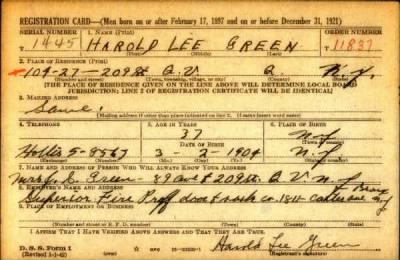 REGISTRATION CARD—(Men born on or after February 17, 1897 and on or before December 31, 1921)
SERIAL NUMBER 1. NAME (Print) ORDER NUMBER
T 1445 HAROLD LEE GREEN 11837
(First) (Middle) (Last)
2. PLACE OF RESIDENCE (Print)
104-27-209 St Q.V. Q. N.Y.
(Number and street) (Town, township, village, or city) (County) (State)
[THE PLACE OF RESIDENCE GIVEN ON THE LINE ABOVE WILL DETERMINE LOCAL BOARD
JURISDICTION; LINE 2 OF REGISTRATION CERTIFICATE WILL BE IDENTICAL]
3. MAILING ADDRESS
Same.
[Mailing address if other than place indicated on line 2. If same insert word same]
4. TELEPHONE 5. AGE IN YEARS 6. PLACE OF BIRTH
37 N.Y.
DATE OF BIRTH
Hollis 5-8567 3-2-1904 N.Y.
(Exchange) (Number) (Mo.) (Day) (Yr.) (State or country)
7. NAME AND ADDRESS OF PERSON WHO WILL ALWAYS KNOW YOUR ADDRESS
Green 89 ave + 209 St. Q V N.Y
8. EMPLOYER'S NAME AND ADDRESS
Superior Fire Proff door + sash co. 1811 ave Bronx N.Y
9. PLACE OF EMPLOYMENT OR BUSINESS
(Number and street or R. F. D. number) (Town) (County) (State)
I AFFIRM THAT I HAVE VERIFIED ABOVE ANSWERS AND THAT THEY ARE TRUE.
D. S. S. Form 1
(Revised 1-1-42) (over) Harold Lee Green
(Registrant's signature)